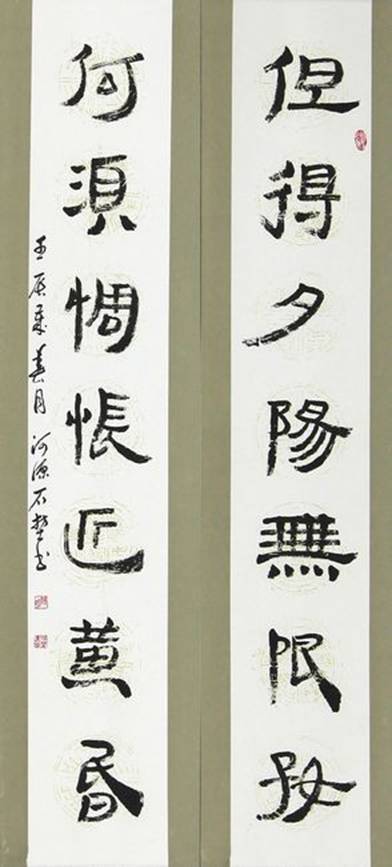 但得夕陽無限好
何須惆悵近黃昏
壬辰年春月河源石楚書